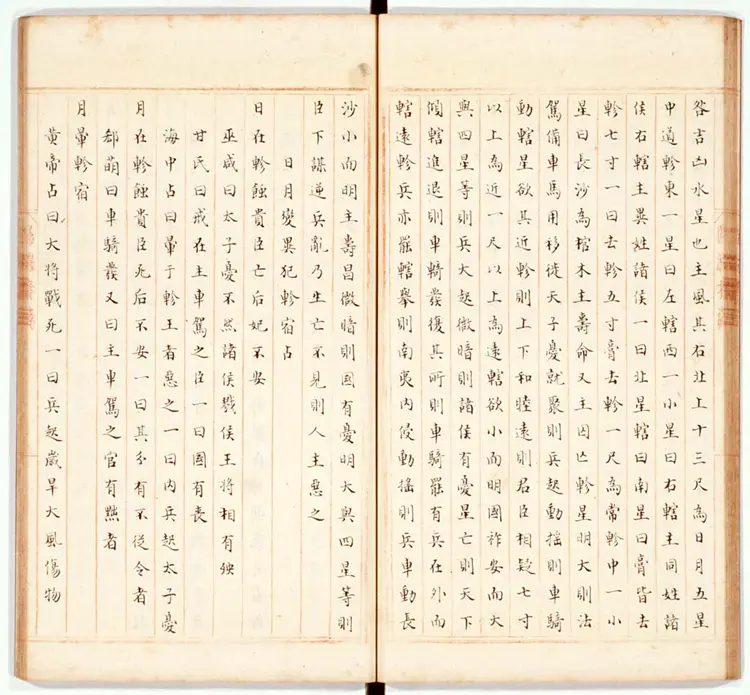 咎吉凶水星也主風其右北上十三尺為日月五星
中道軫東一星曰左轄西一小星曰右轄主同姓諸
侯右轄主異姓諸侯一曰北星轄曰南星曰膏皆去
軫七寸一曰去軫五寸膏去軫一尺為常軫中一小
星曰長沙為棺木主壽命又主囚亡軫星明大則法
駕備車馬用移徙天子憂就聚則兵起動搖則車騎
動轄星欲其近軫則上下和睦遠則君臣相疑七寸
以上為近一尺以上為遠轄欲小而明國祚安而大
與四星等則兵大起微暗則諸侯有憂星亡則天下
傾轄進退則車騎發復其所則車騎罷有兵在外而
轄遠軫兵亦罷轄舉則南夷內侵動搖則兵車動長
沙小而明主壽昌微暗則國有憂明大與四星等則
臣下謀逆兵亂乃生亡不見則人主惡之
日月變異犯軫宿占
日在軫蝕貴臣亡后妃不安
巫咸曰太子憂不然諸侯戮侯王將相有殃
甘氏曰戒在主車駕之臣一曰國有喪
海中占曰暈于軫王者惡之一曰內兵起太子憂
月在軫蝕貴臣死后不安一曰其分有不從令者
郄萌曰車騎發又曰主車駕之官有黜者
月暈軫宿
黃帝占曰大將戰死一曰兵起歲旱大風傷物